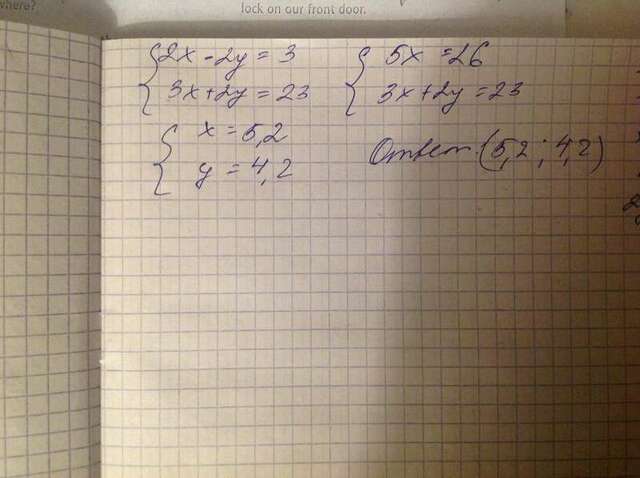 where?
lock on our front door.
2x - 2y = 3
3x + 2y = 23
5x = 26
3x + 2y = 23
x = 5,2
y = 4,2
Ответ (5,2 ; 4,2)